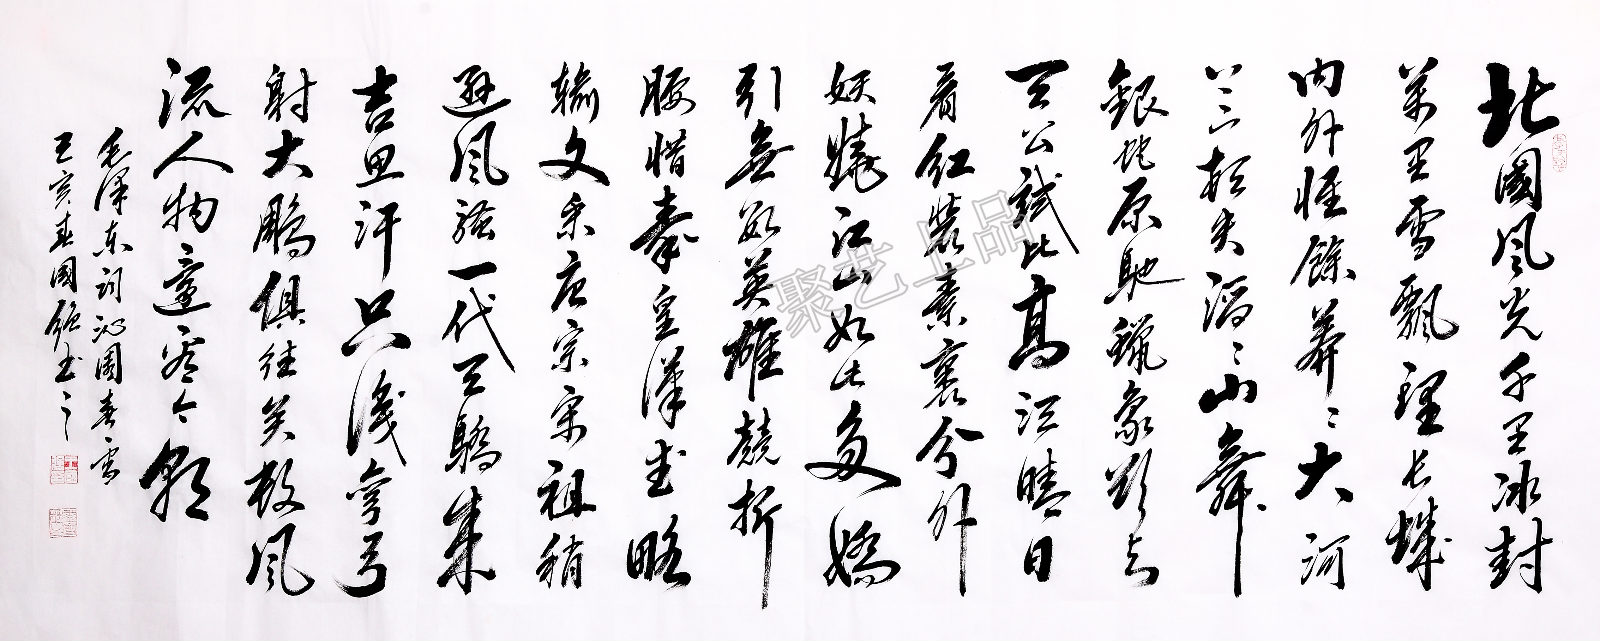 北國風光千里冰封
萬里雪飄望長城
内外惟餘莽〻大河
上下頓失滔〻山舞
銀蛇原馳蠟象欲与
天公試比高须晴日
看红裝素裹分外
妖嬈江山如此多嬌
引無数英雄競折
腰惜秦皇漢武略
输文采唐宗宋祖稍
遜風騷一代天驕成
吉思汗只識彎弓
射大鵰俱往矣数風
流人物還看今朝
毛澤东詞沁園春雪
春國強书
聚艺上品